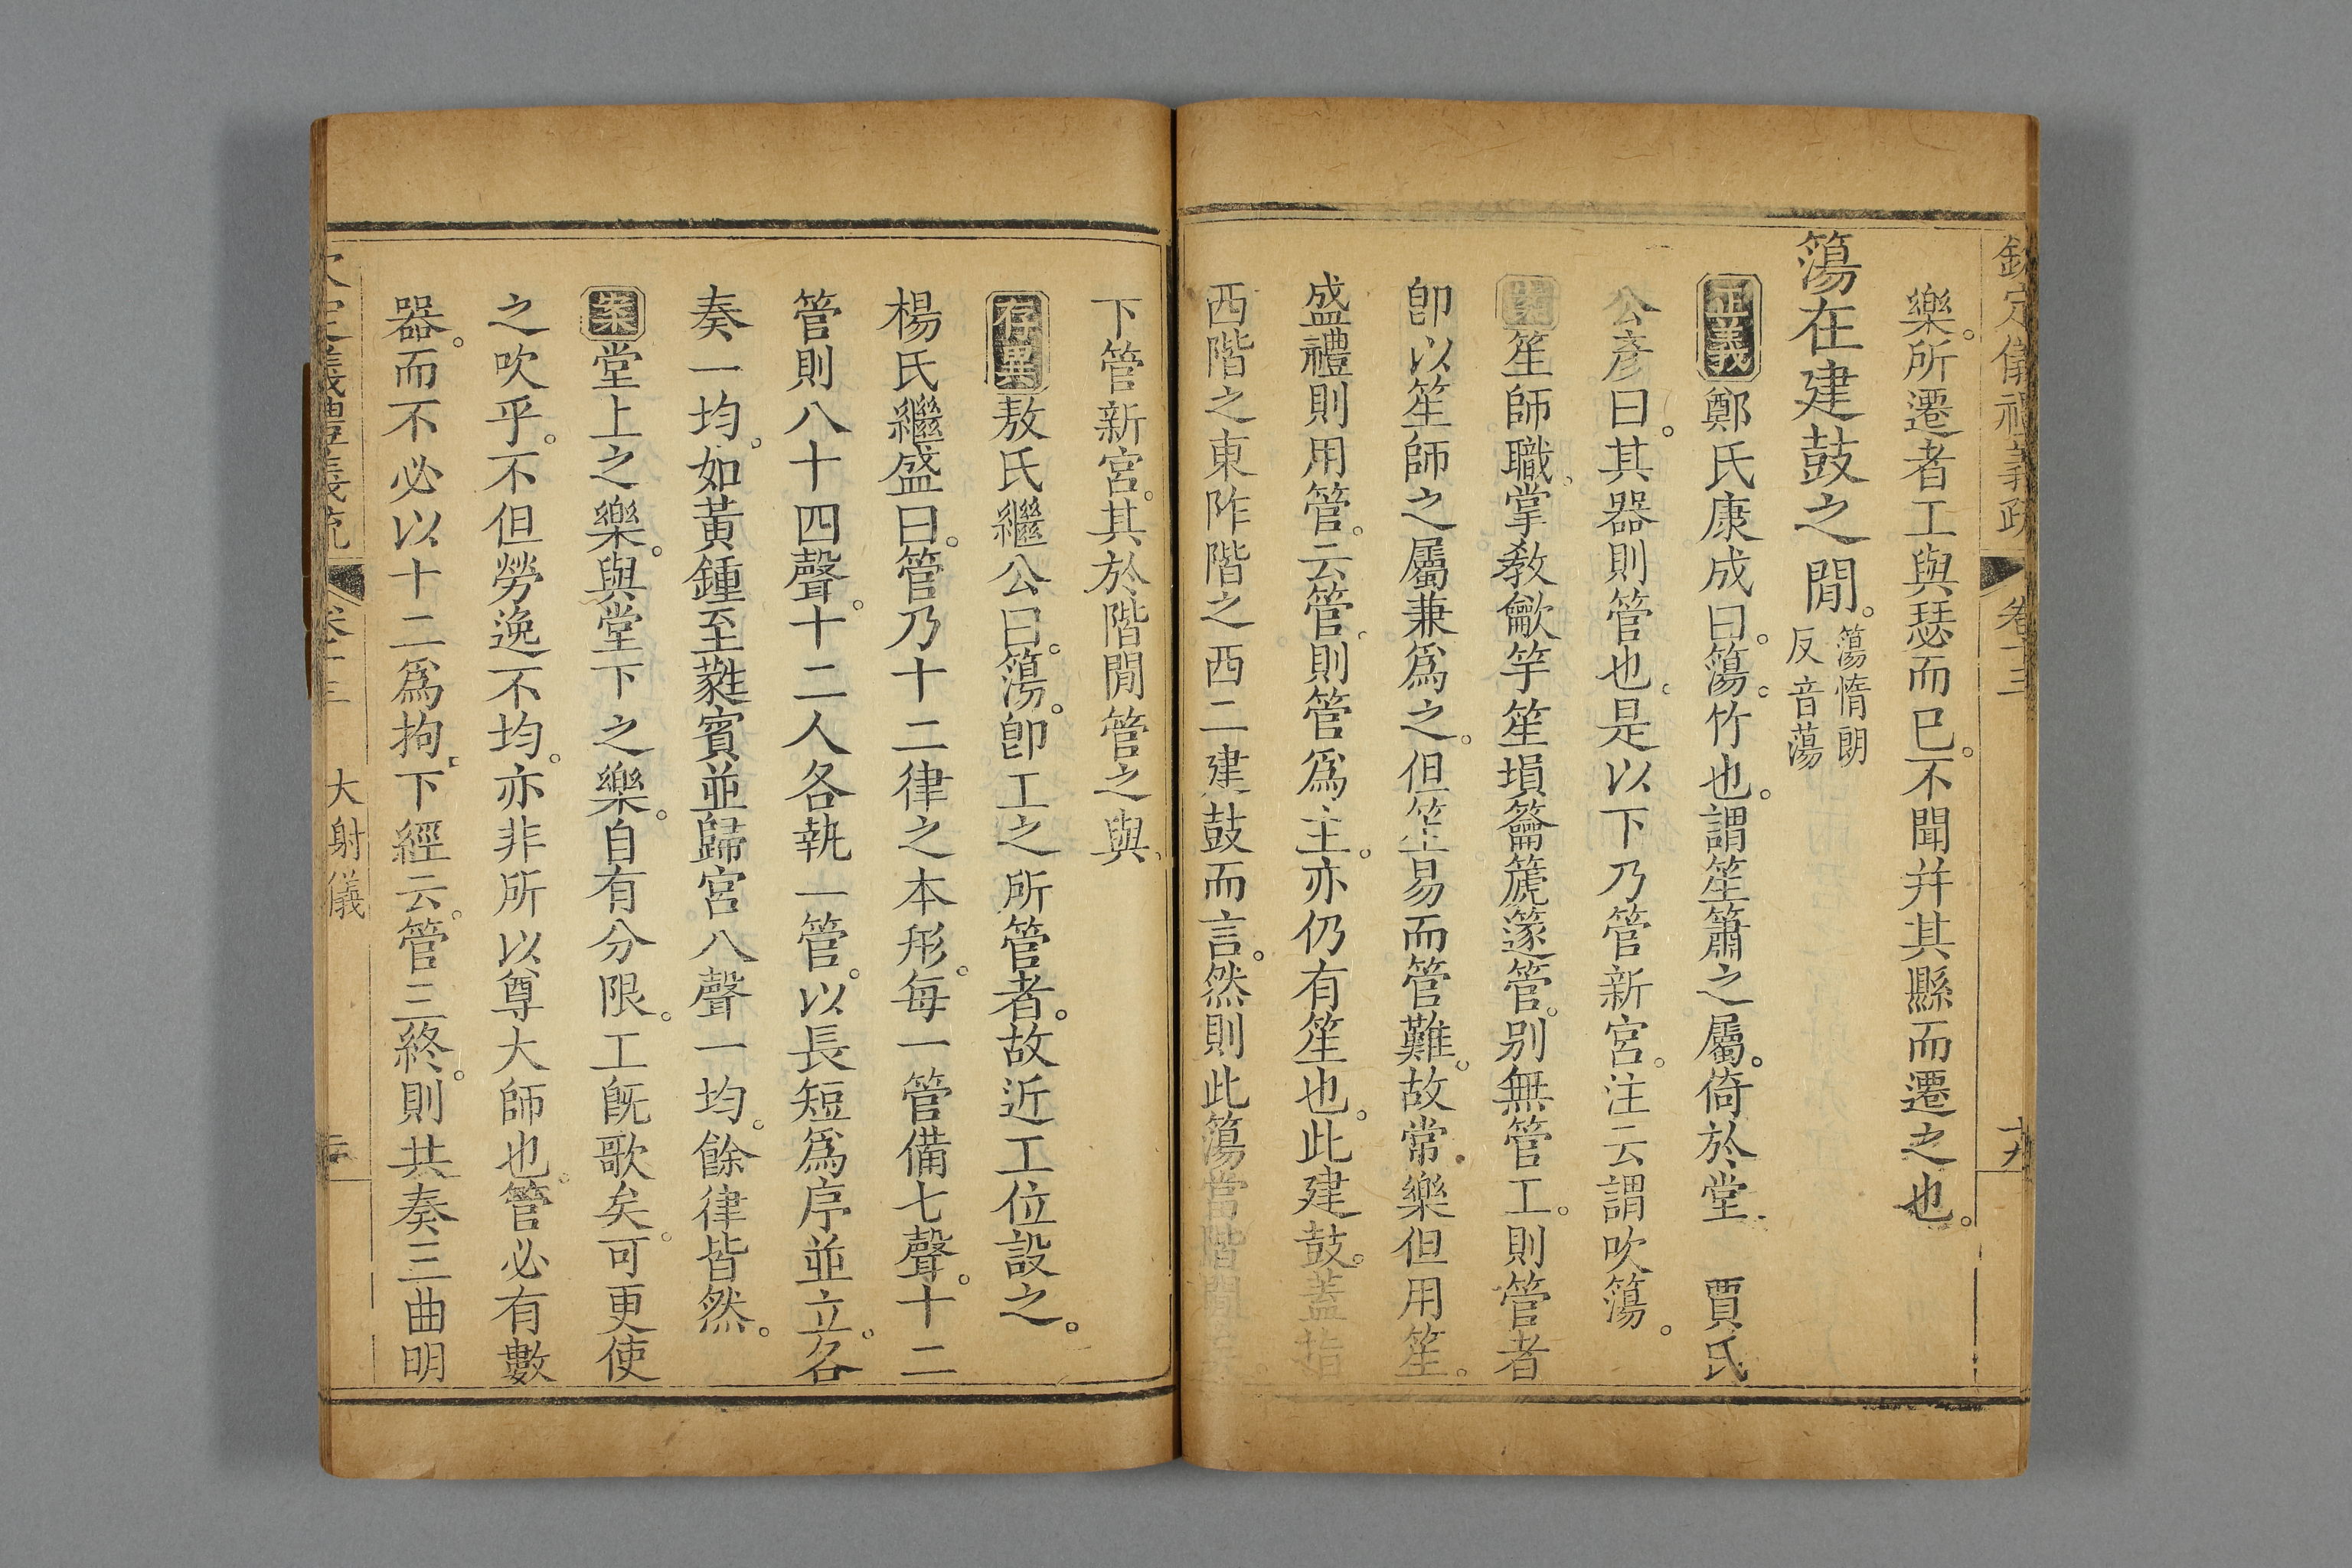 欽定儀禮義疏 卷十三 十九
樂。所遷者工與瑟而已。不聞并其縣而遷之也。
簜在建鼓之閒。簜惰朗
反音蕩
正義鄭氏康成曰。簜。竹也。謂笙簫之屬。倚於堂 賈氏
公彥曰。其器則管也。是以下乃管新宮。注云謂吹簜。
案笙師職。掌敎龡竽笙塤籥篪篴管。别無管工。則管者
卽以笙師之屬兼爲之。但笙易而管難。故常樂但用笙。
盛禮則用管。云管。則管爲主。亦仍有笙也。此建鼓。蓋指
西階之東阼階之西二建鼓而言。然則此簜當階閒
下管新宮。其於階閒管之與、
存異敖氏繼公曰。簜。卽工之所管者。故近工位設之。
楊氏繼盛曰。管乃十二律之本形。每一管備七聲。十二
管則八十四聲。十二人各執一管。以長短爲序並立。各
奏一均。如黃鍾至蕤賓並歸宮八聲一均。餘律皆然。
案堂上之樂。與堂下之樂。自有分限。工旣歌矣。可更使
之吹乎。不但勞逸不均。亦非所以尊大師也。管必有數
器。而不必以十二爲拘。下經云。管三終。則共奏三曲明
大射儀